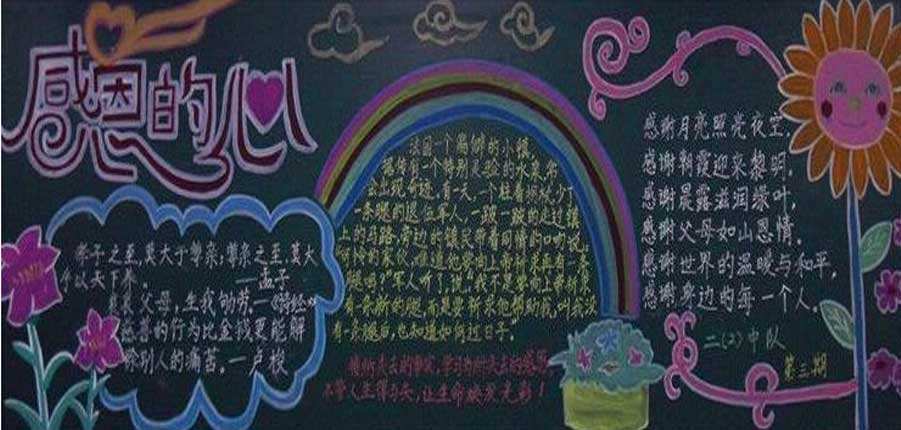 感恩的心
孝子之至,莫大于尊亲,尊亲之至,莫大
乎以天下养。 —孟子
哀哀父母,生我劬劳。—《诗经》
慈善的行为比金钱更能解
除别人的痛苦。—卢梭
法国一个偏僻的小镇,
据传有一个特别灵验的水泉,常
会出现奇迹,有一天,一个拄着拐杖,少了
一条腿的退伍军人,一跛一跛的走过镇
上的马路,旁边的镇民带着同情的口吻说:
可怜的家伙,难道他要向上帝祈求再有一条
腿吗?"军人听了,说:"我不是要向上帝祈求
有一条新的腿,而是要祈求他帮助我,叫我没
有一条腿后,也知道如何过日子"
不管人生得与失,让生命焕发光彩!
感谢月亮照亮夜空,
感谢朝霞迎来黎明,
感谢晨露滋润绿叶,
感谢父母如山恩情,
感谢世界的温暖与和平,
感谢身边的每一个人。
二(2)中队
第三期